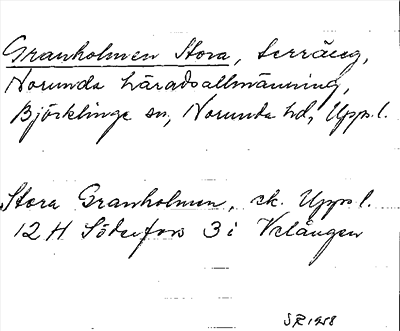 Granholmen Stora, terräng,
Norunda häradsallmänning,
Björklinge sn, Norunda hd, Upps. l.
Stora Granholmen, ek. Upps l.
12 H Söderfors 3 i Velången
SR 1958